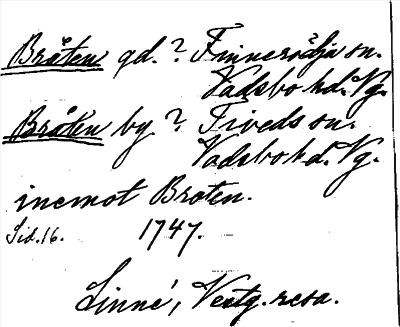 Bråten gd.? Finnerödja sn.
Vadsbo hd. Vg.
Bråten by? Tiveds sn.
Vadsbo hd. Vg.
inemot Braten.
Sid. 16. 1747.
Linné, Vestg. resa.